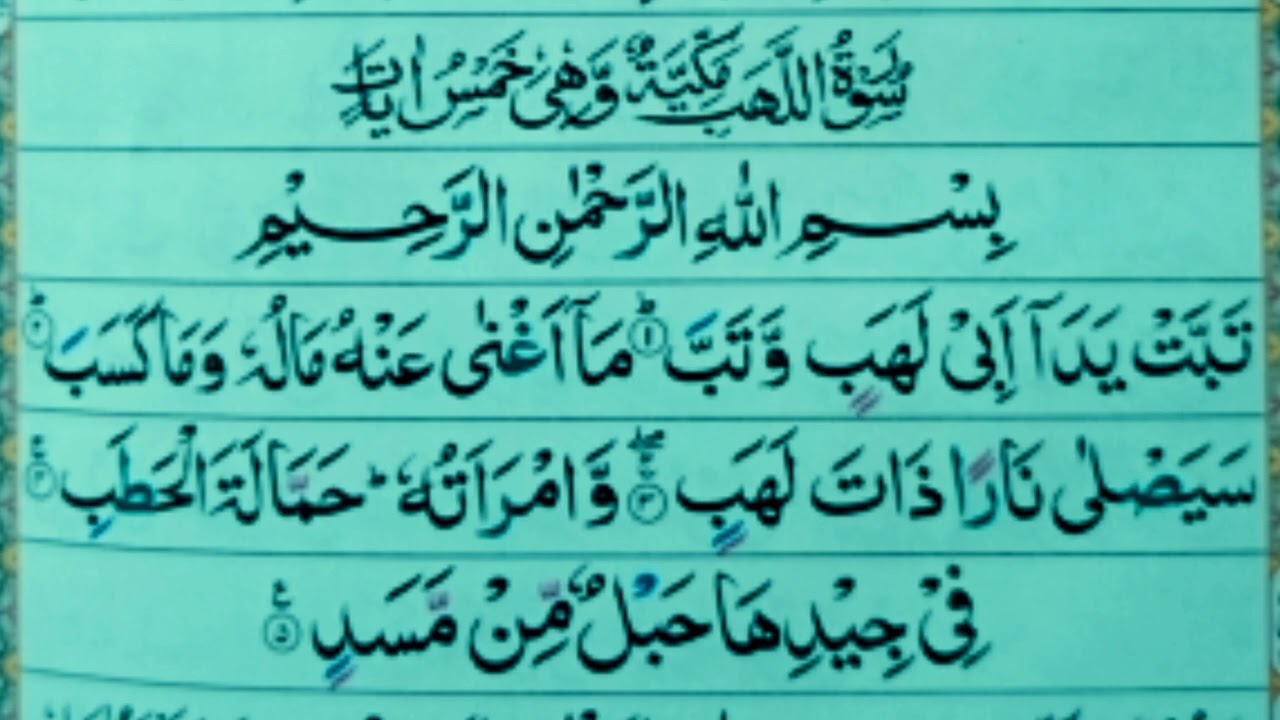 سُوْرَةُ اللَّهَبِ مَكِّيَّةٌ وَّهِيَ خَمْسُ اٰيَاتٍ
بِسْمِ اللّٰهِ الرَّحْمٰنِ الرَّحِيْمِ
تَبَّتْ يَدَآ اَبِىْ لَهَبٍ وَّتَبَّ ؕ﴿۱﴾ مَاۤ اَغْنٰى عَنْهُ مَالُهٗ وَمَا كَسَبَ ؕ﴿۲﴾
سَيَصْلٰى نَارًا ذَاتَ لَهَبٍ ۖۚ﴿۳﴾ وَّامْرَاَتُهٗ ؕ حَمَّالَةَ الْحَطَبِ ۚ﴿۴﴾
فِىْ جِيْدِهَا حَبْلٌ مِّنْ مَّسَدٍ ﴿۵﴾ ع